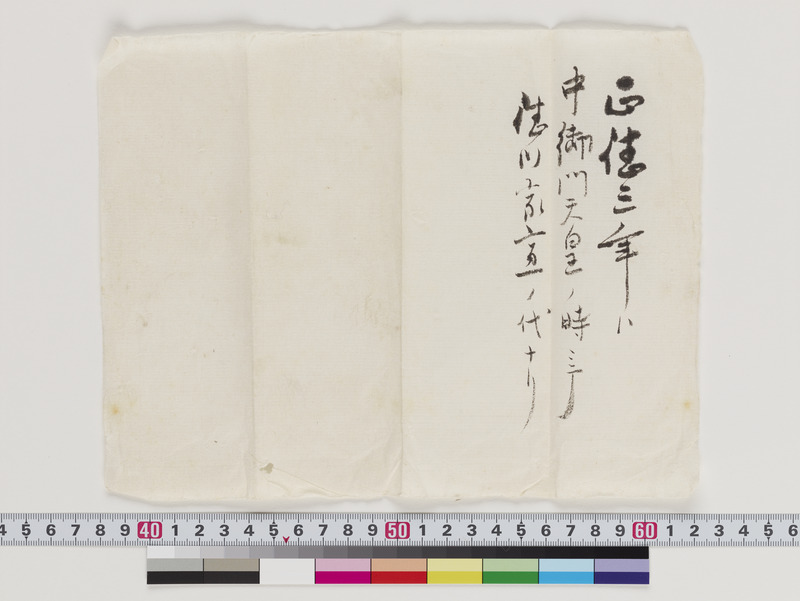 正徳三年ハ
中御門天皇ノ時ニテ
徳川家宣ノ代ナリ
4 5 6 7 8 9 40 1 2 3 4 5 6 7 8 9 50 1 2 3 4 5 6 7 8 9 60 1 2 3 4 5 6